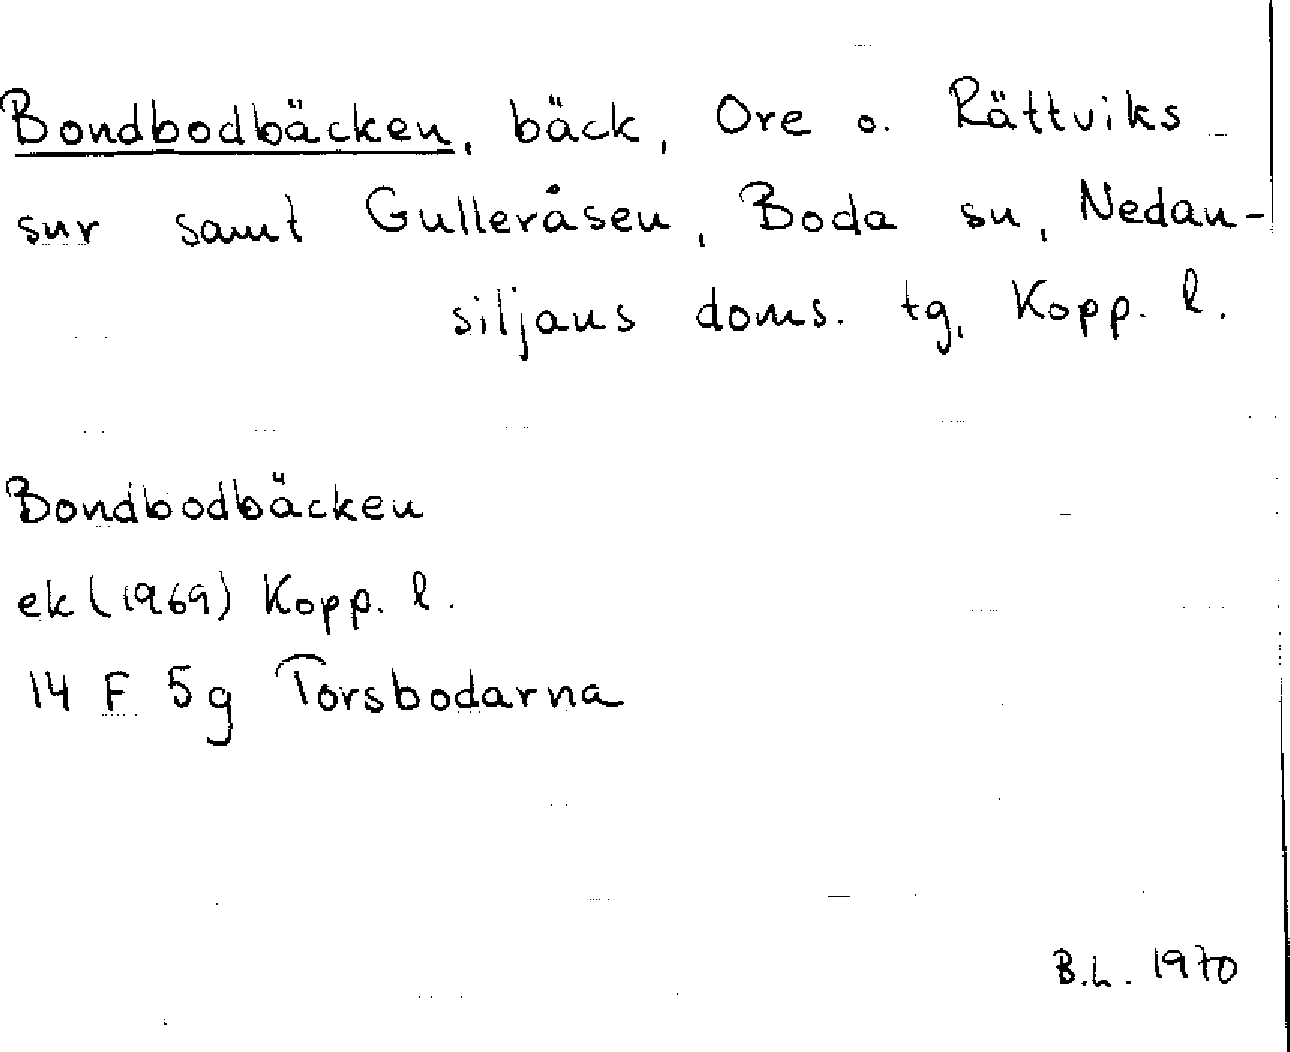 Bondbodbäcken, bäck, Ore o. Rättviks
snr samt Gulleråsen, Boda sn, Nedan-
siljans doms. tg, Kopp. l.
Bondbodbäcken
ek (1969) Kopp. l.
14 F 5g Torsbodarna
B.L. 1970